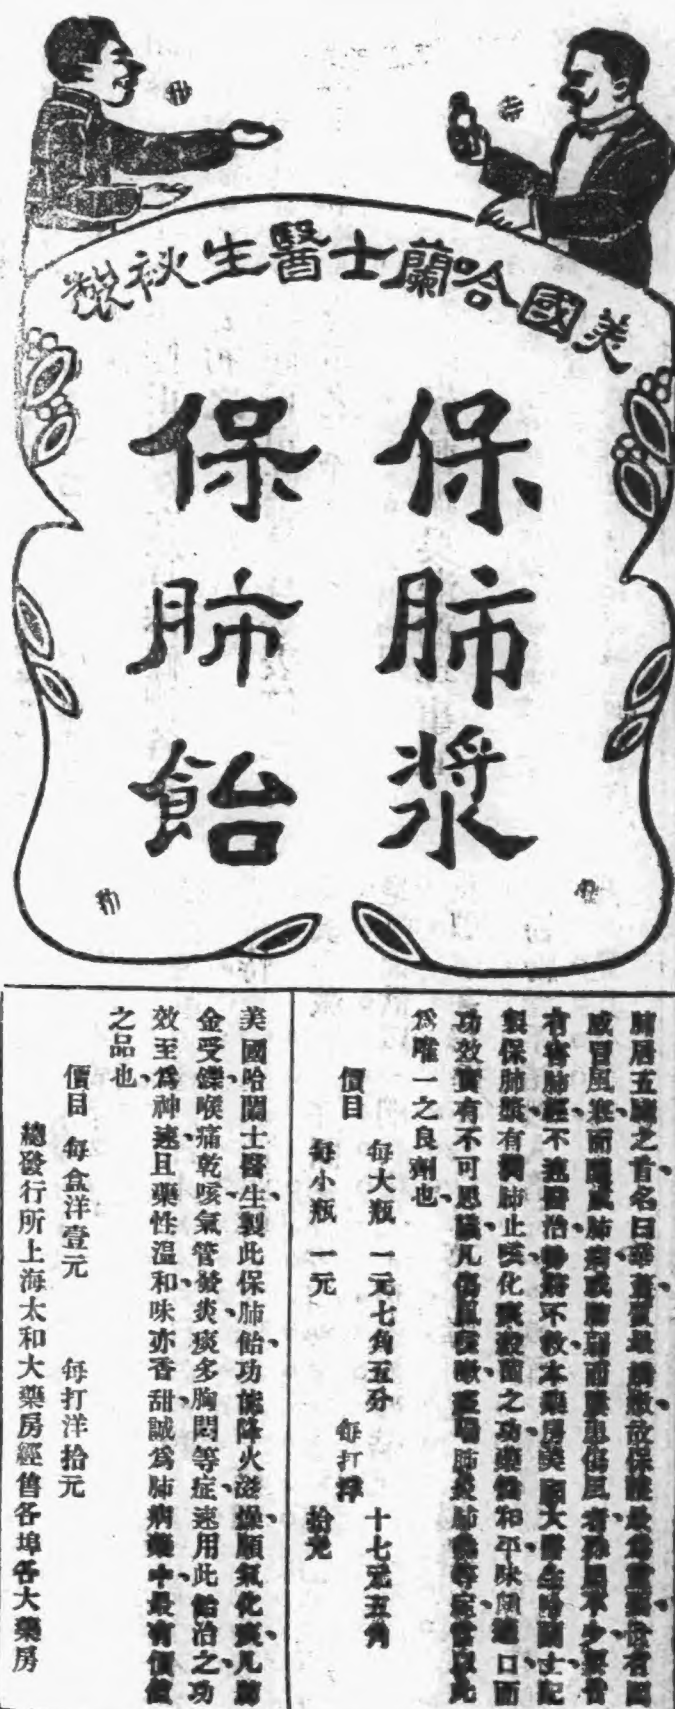 美國哈蘭士醫生秋製
保肺漿
保肺飴
肺居五臟之首名曰華蓋質最嬌嫩故保護最為
感冒風寒而釀成肺病或肺弱而屢患傷風者
有害肺經不速醫治不救本藥房美國大醫生哈蘭士
製保肺漿有潤肺止咳化痰殺菌之功藥性和平味適口而
功效實有不可思議凡傷風咳嗽肺炎肺
為唯一之良劑也
價目 每大瓶 一元七角五分 每打洋 十七元五角
每小瓶 一元 拾元
美國哈蘭士醫生製此保肺飴功能降火滋燥順氣化痰凡肺
金受鑠喉痛乾咳氣管發炎痰多胸悶等症速用此飴治之功
效至為神速且藥性溫和味亦香甜誠為肺病藥中最有價值
之品也
價目 每盒洋壹元 每打洋拾元
總發行所上海太和大藥房經售各埠各大藥房